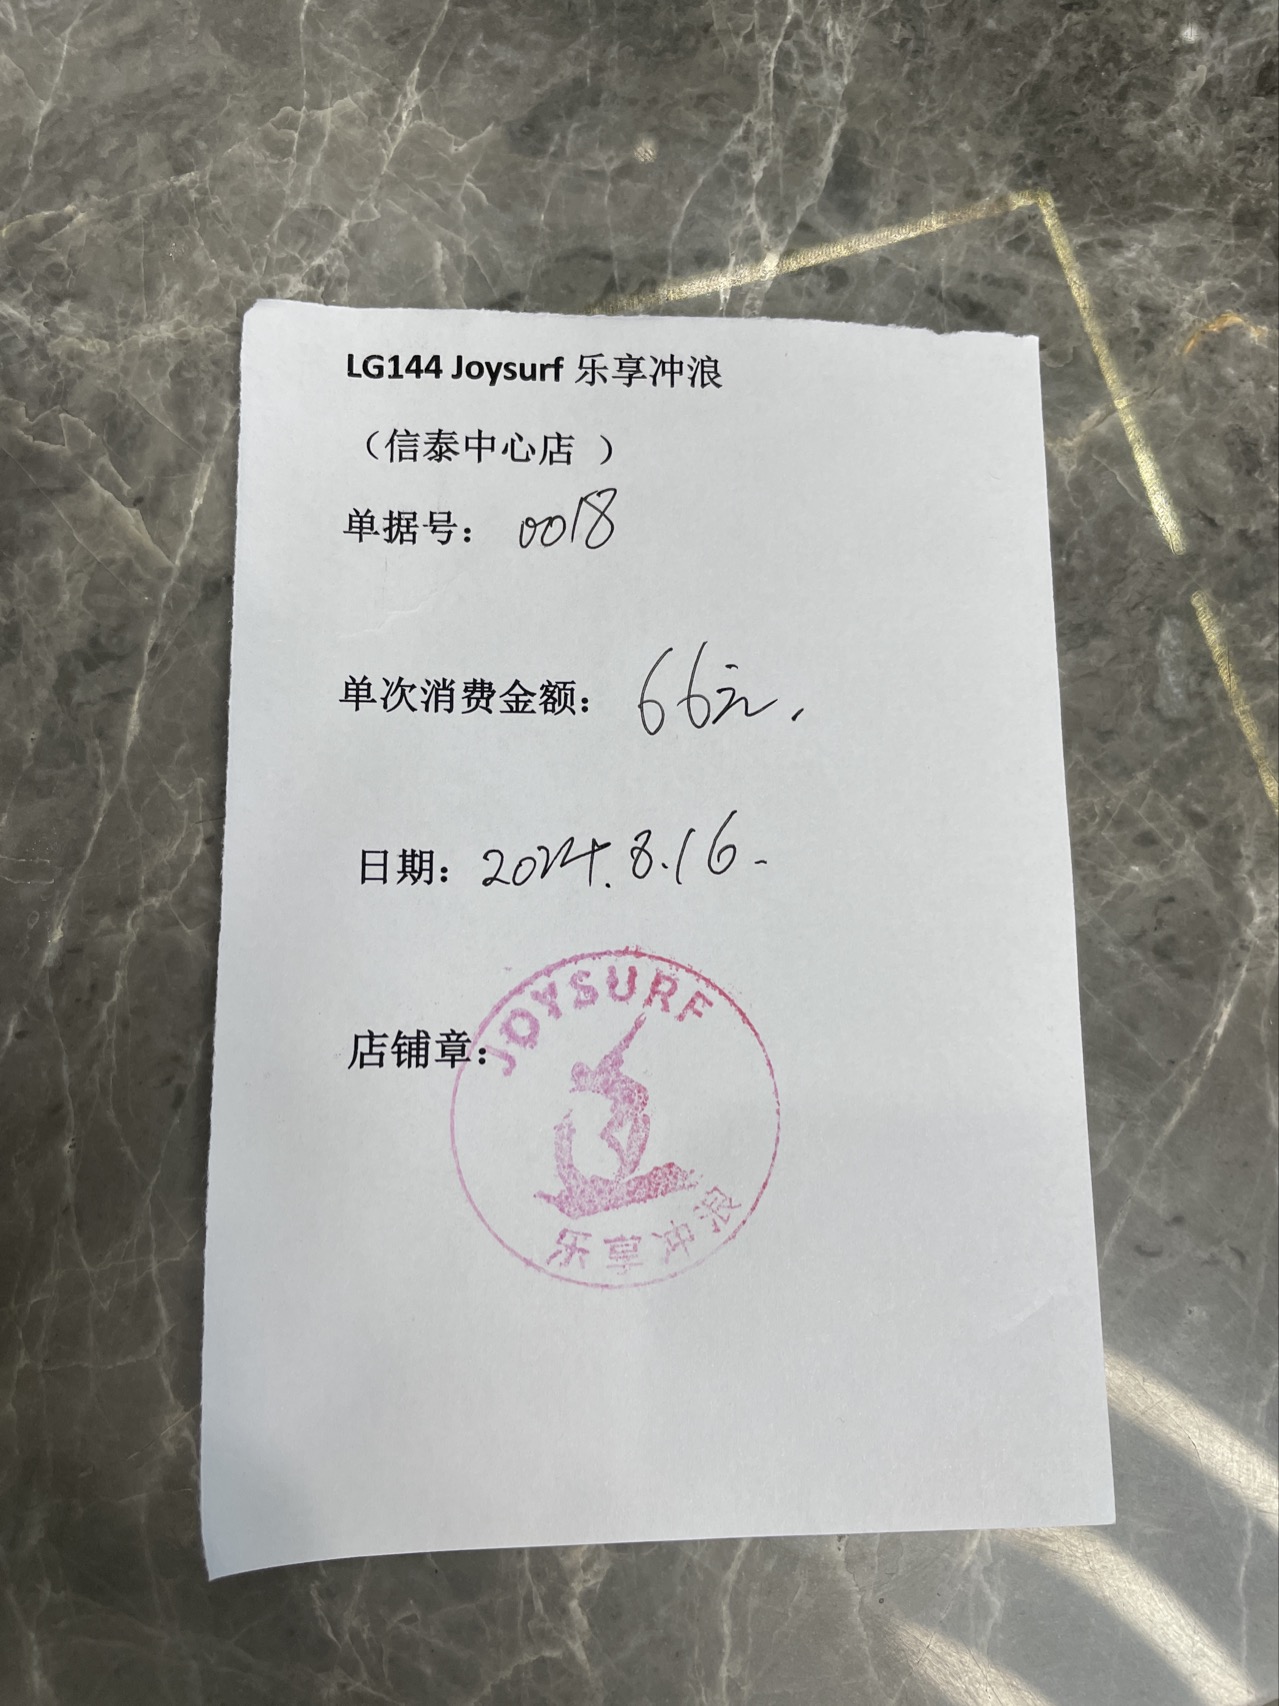 LG144 Joysurf 乐享冲浪
（信泰中心店 ）
单据号： 0018
单次消费金额： 66元.
日期：2024.8.16.
店铺章：
JOYSURF
乐享冲浪